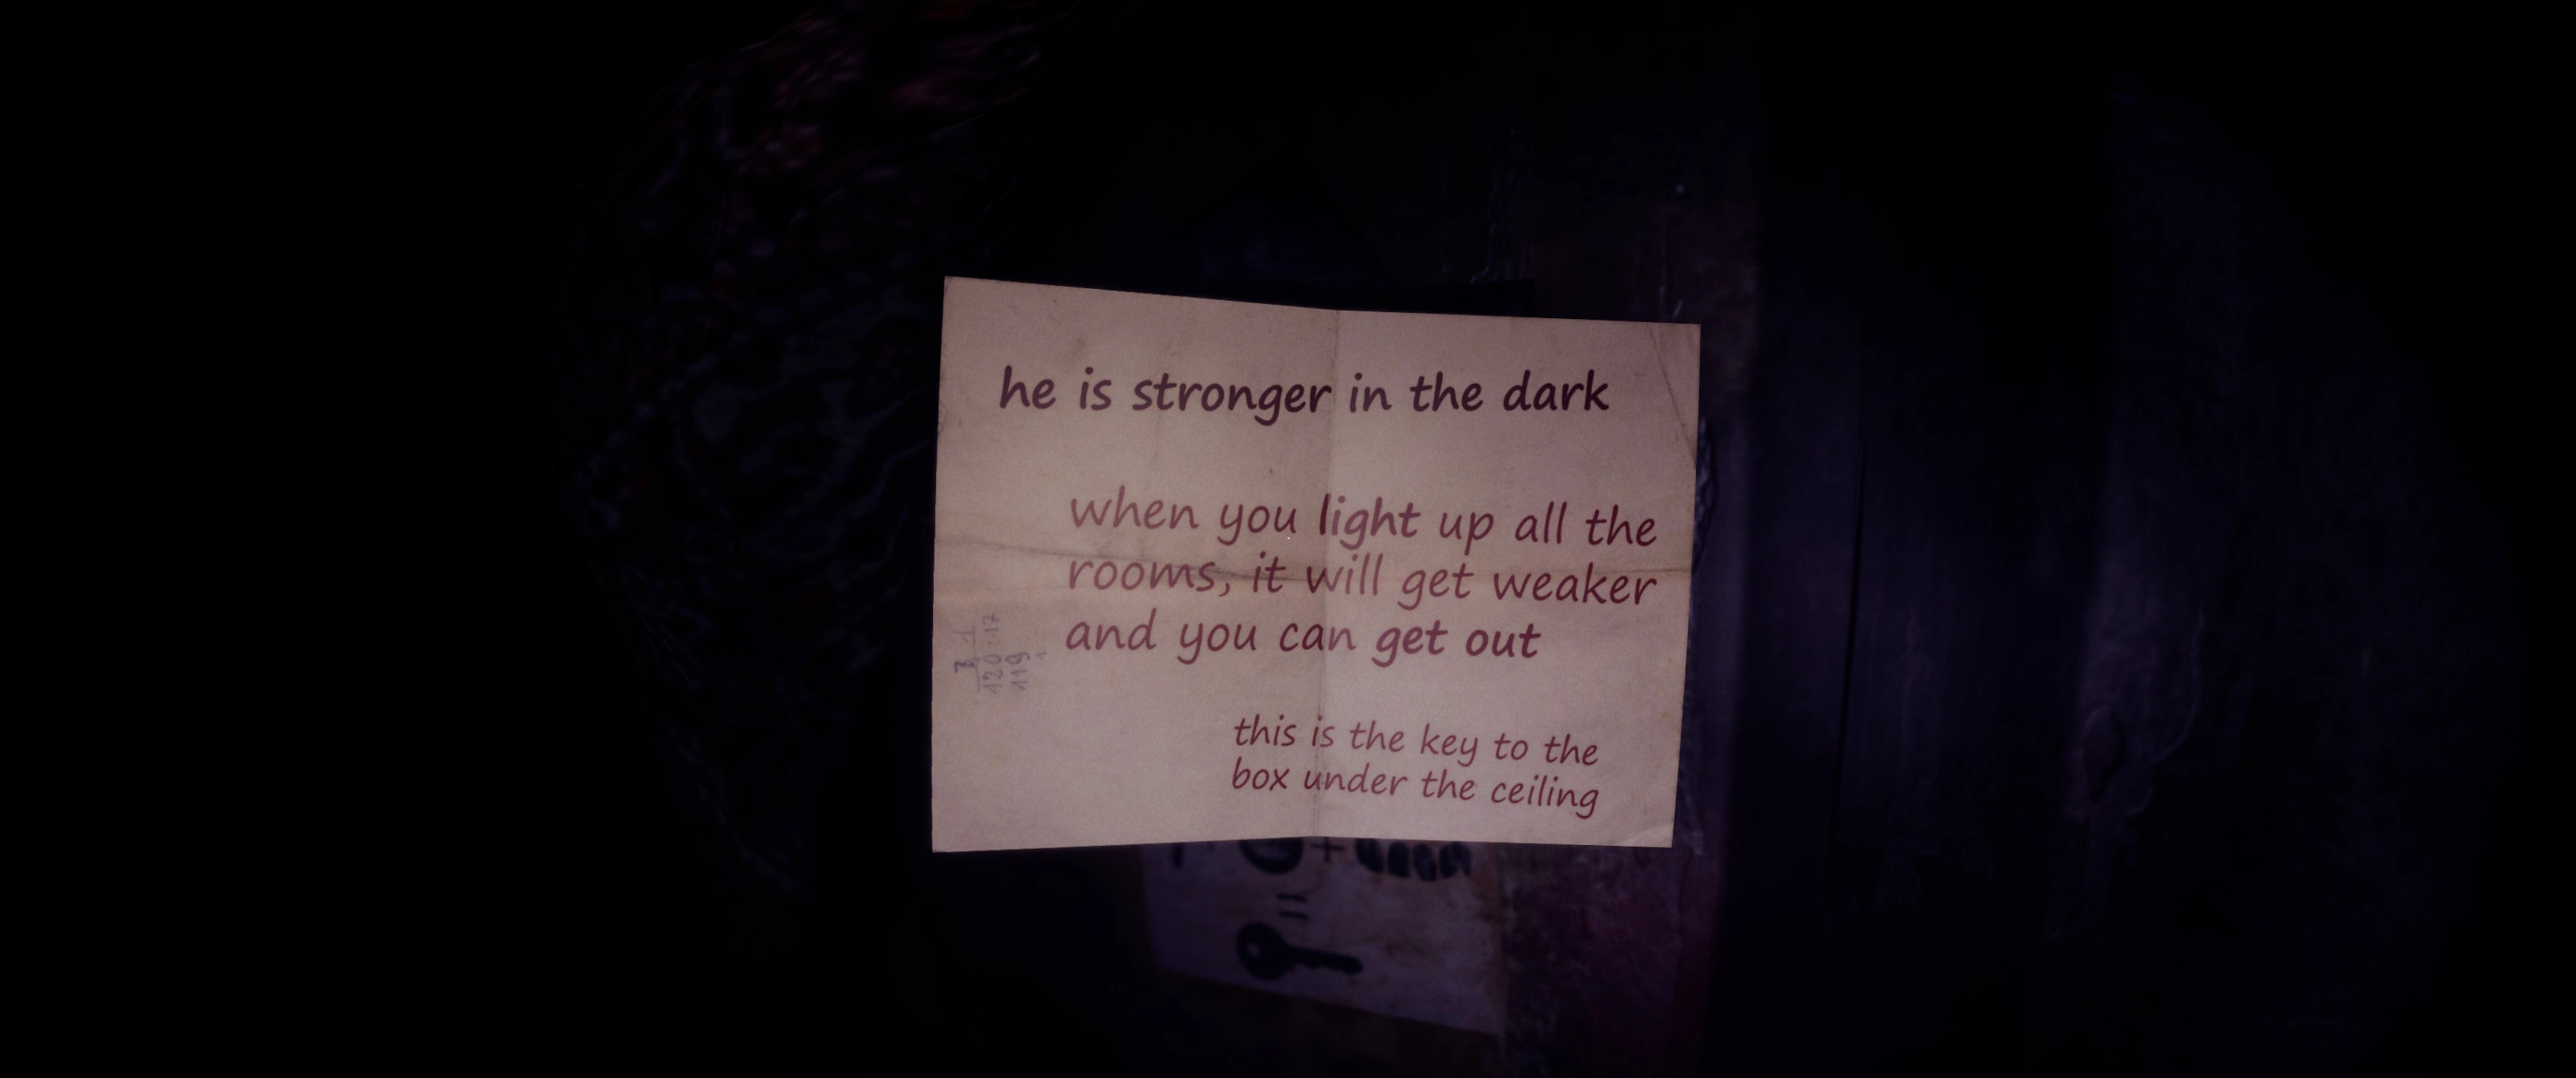 he is stronger in the dark
when you light up all the
rooms, it will get weaker
and you can get out
this is the key to the
box under the ceiling
120:17
119